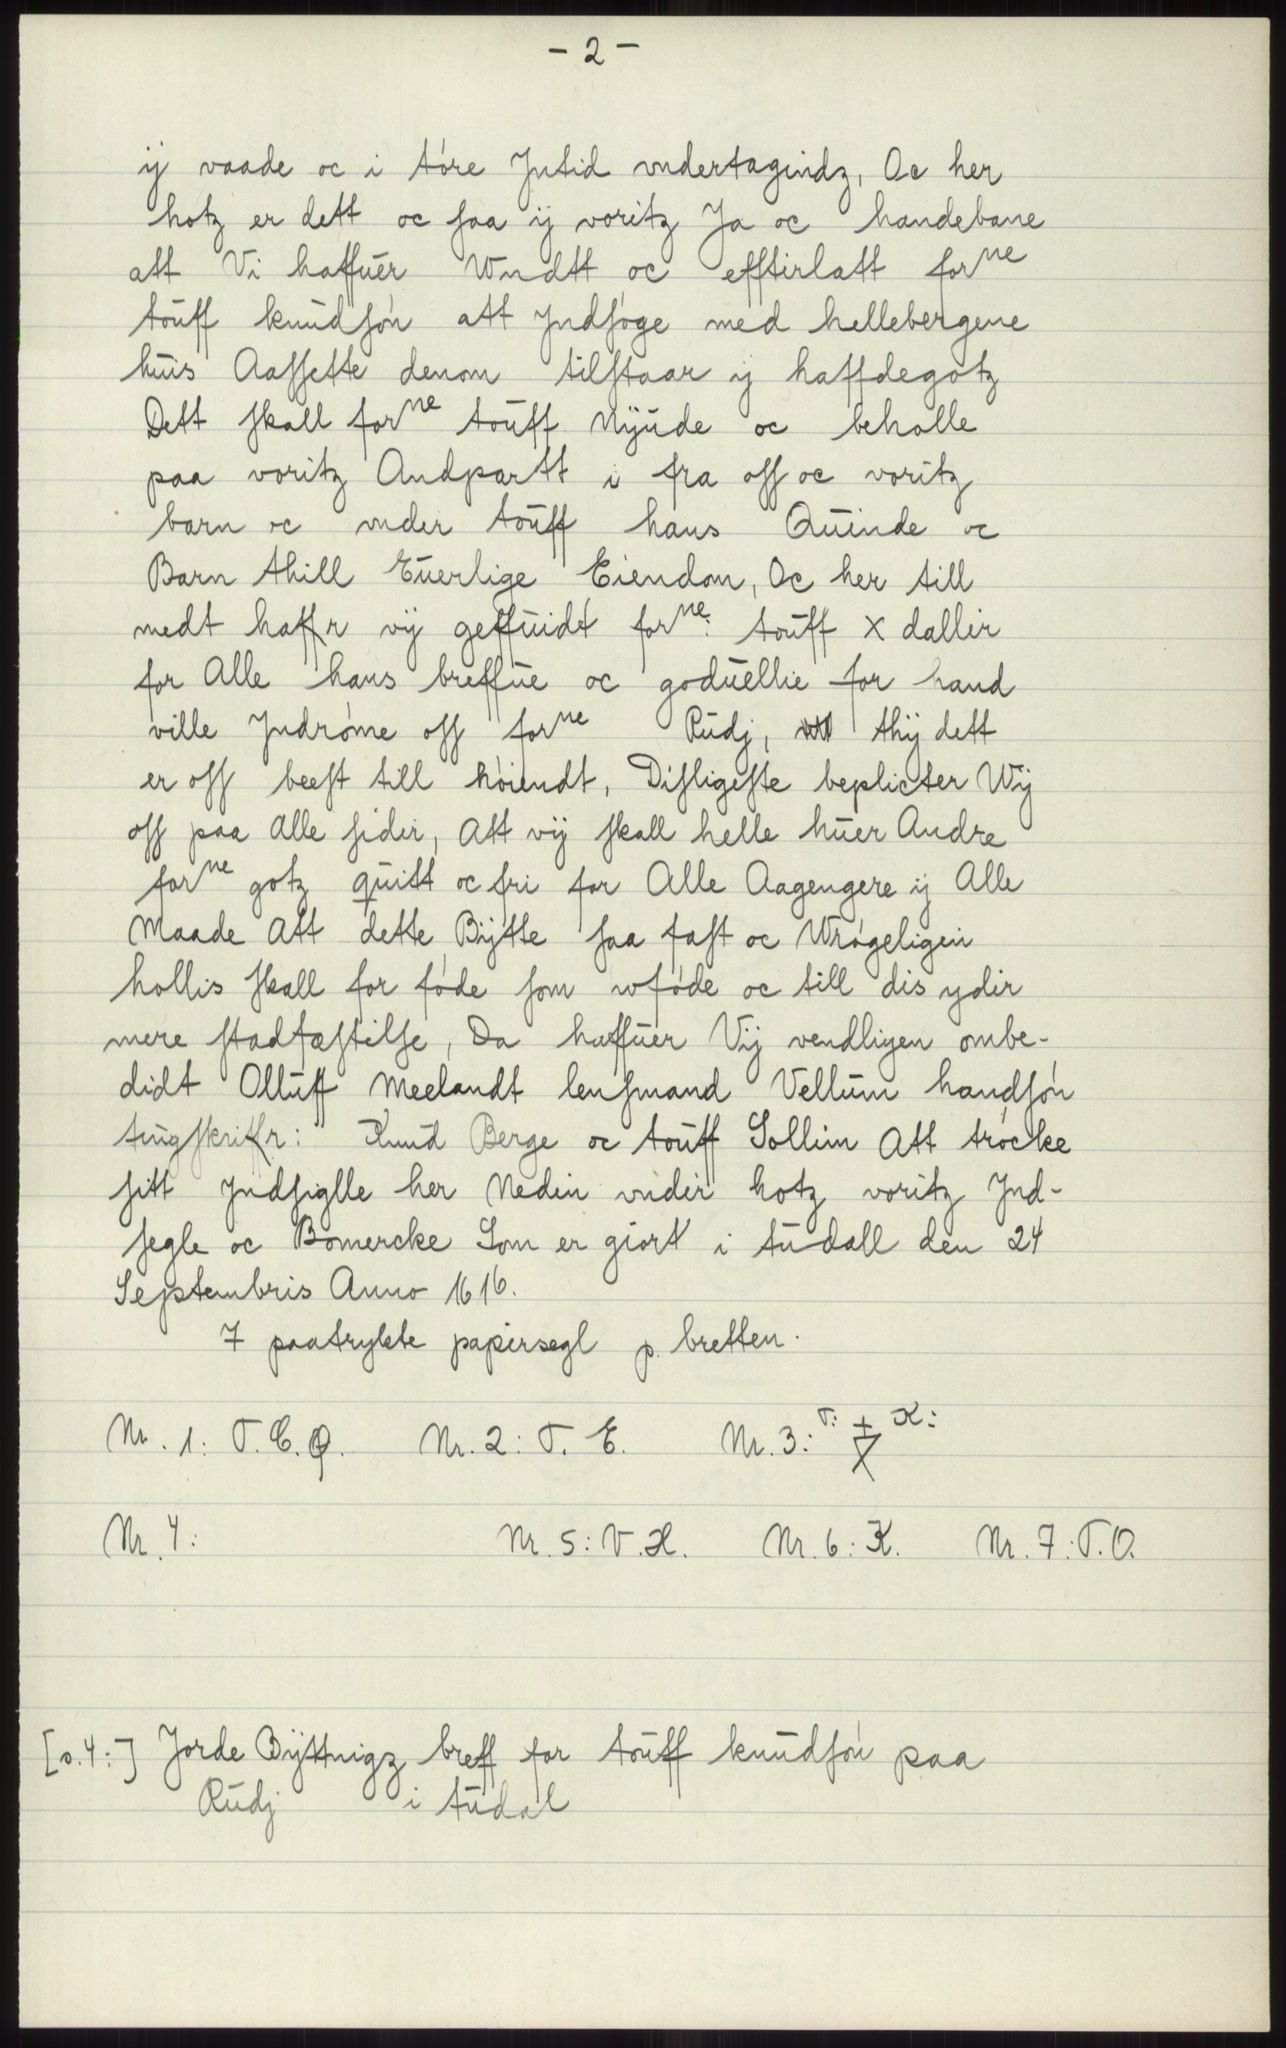 - 2 -
ij vaade oc i tóre Jntid vndertagindz, Oc her
hotz er dett oc saa ij voritz Ja oc handebane
att Vi haffuer Wndtt oc effterlatt forne
touff knudsón att Jndsóge med hellebergene
huis Aassette denom tilstaar ij haffdegotz
Dett skall forne touff Nyude oc beholle
paa voritz Andpartt i fra oss oc voritz
barn oc vnder touff hans Quinde oc
Barn thill Euerlige Eiendom, Oc her till
medt haffr vij geffuidt forne: touff X dallir
for Alle hans breffue oc goduellie for hand
ville Jndróme oss forne Rudj, thij dett
er oss beest till hóiendt, Disligeste beplicter Wij
oss paa Alle sidir, Att vij skall helle huer Andre
forne gotz quitt oc fri for Alle Aagengere ij Alle
Maade Att dette Bijtte saa fast oc Wrógeligin
hollis skall for fóde som wfóde oc till dis ydir
mere stadfæstilse, Da haffuer Vij vendligen ombe-
didt Olluff Meelandt lensmand Vellum handsón
tingskriffr: Knud Berge oc touff Sollim Att trócke
sitt Jndsiglle her Nedin vndir hotz voritz Jnd-
segle oc Bomercke Som er giort i tudall den 24
Septembris Anno 1616.
7 paatrykte papirsegl p. bretten.
Nr. 1: T. E. Q. Nr. 2: T. E. Nr. 3: T: K:
Nr. 4: Nr. 5: V. H. Nr. 6: K. Nr. 7: T. O.
[s. 4:] Jorde Bijttnigz breff for touff knudsón paa
Rudj i tudal